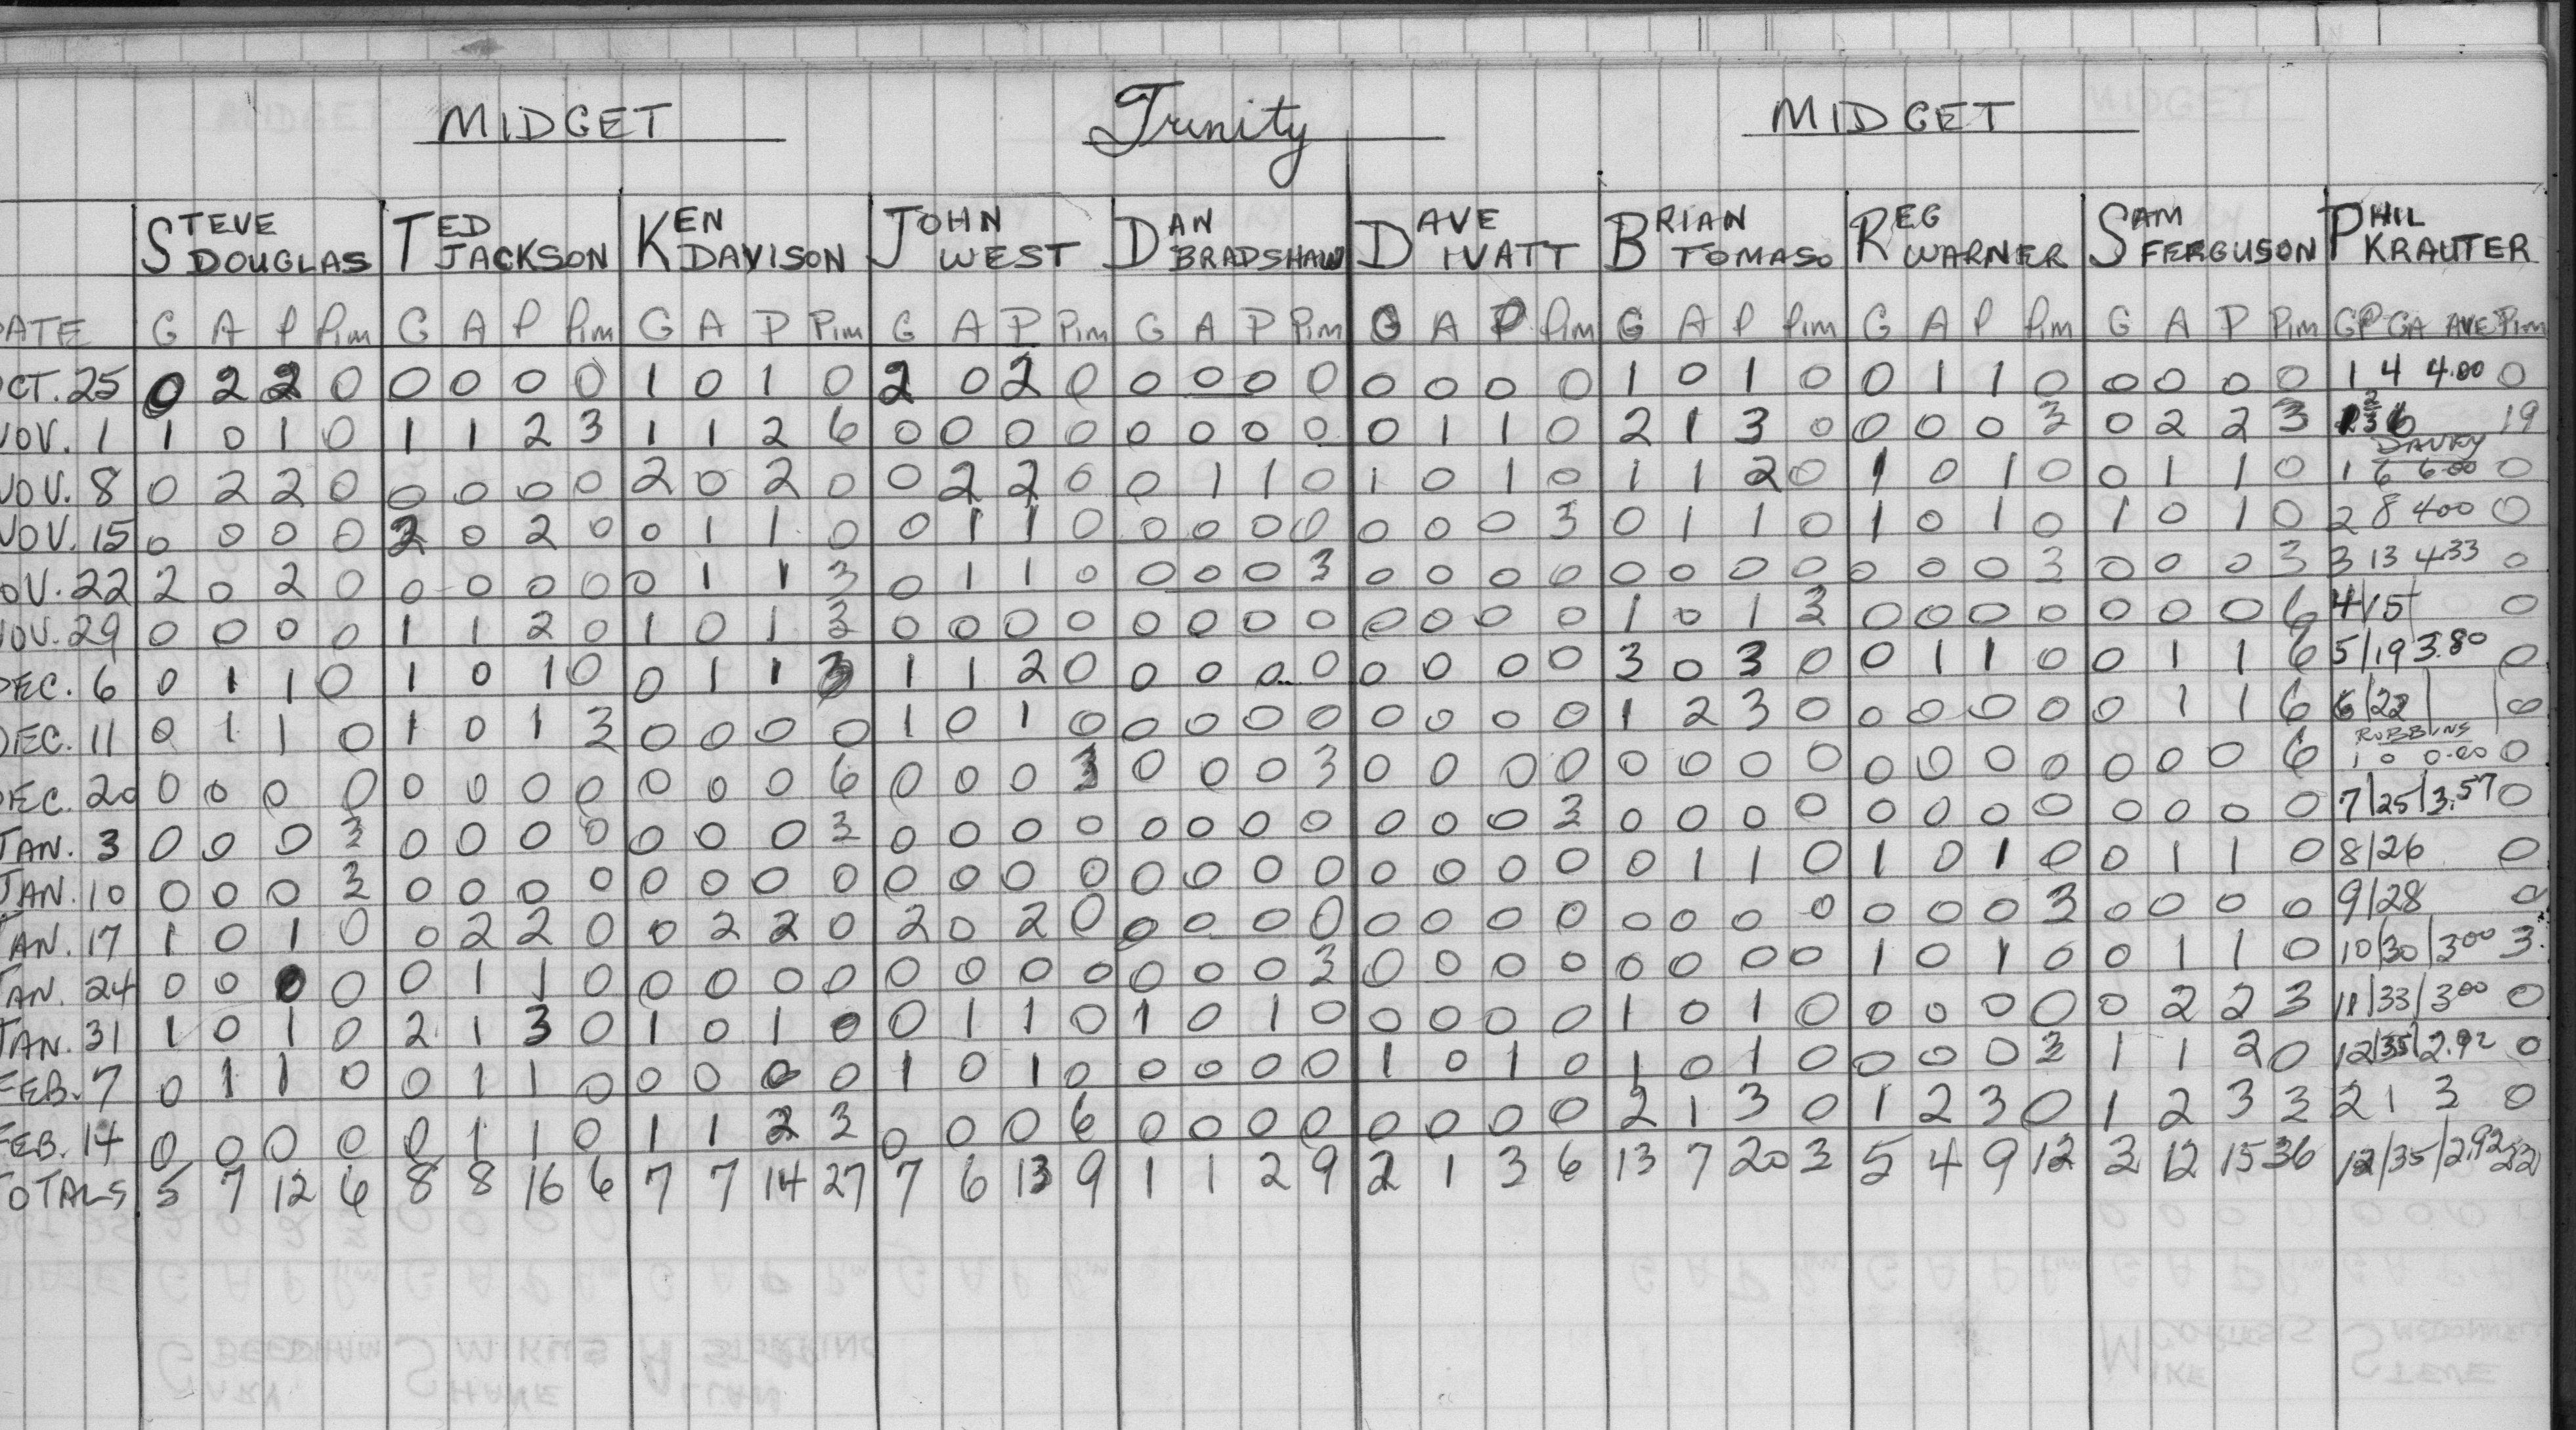 MIDGET Trinity MIDGET
STEVE DOUGLAS TED JACKSON KEN DAVISON JOHN WEST DAN BRADSHAW DAVE IVATT BRIAN TOMASO REG WARNER SAM FERGUSON PHIL KRAUTER
DATE G A P Pim G A P Pim G A P Pim G A P Pim G A P Pim G A P Pim G A P Pim G A P Pim G A P Pim GP GA AVE Pim
OCT. 25 0 2 2 0 0 0 0 0 1 0 1 0 2 0 2 0 0 0 0 0 0 0 0 0 1 0 1 0 0 1 1 0 0 0 0 0 1 4 4.00 0
NOV. 1 1 0 1 0 1 1 2 3 1 1 2 6 0 0 0 0 0 0 0 0 0 1 1 0 2 1 3 0 0 0 0 3 0 2 2 3 19
NOV. 8 0 2 2 0 0 0 0 0 2 0 2 0 0 2 2 0 0 1 1 0 1 0 1 0 1 1 2 0 1 0 1 0 0 1 1 0 1 6 6.00 0
NOV. 15 0 0 0 0 2 0 2 0 0 1 1 0 0 1 1 0 0 0 0 0 0 0 0 3 0 1 1 0 1 0 1 0 1 0 1 0 2 8 4.00 0
NOV. 22 2 0 2 0 0 0 0 0 0 1 1 3 0 1 1 0 0 0 0 3 0 0 0 0 0 0 0 0 0 0 0 3 0 0 0 3 3 13 4.33 0
NOV. 29 0 0 0 0 1 1 2 0 1 0 1 3 0 0 0 0 0 0 0 0 0 0 0 0 1 0 1 3 0 0 0 0 0 0 0 6 4/15 0
DEC. 6 0 1 1 0 1 0 1 0 0 1 1 3 1 1 2 0 0 0 0 0 0 0 0 0 3 0 3 0 0 1 1 0 0 1 1 6 5/19 3.80 0
DEC. 11 0 1 1 0 1 0 1 3 0 0 0 0 1 0 1 0 0 0 0 0 0 0 0 0 1 2 3 0 0 0 0 0 0 1 1 6 6/22 0
ROBBINS
DEC. 20 0 0 0 0 0 0 0 0 0 0 0 6 0 0 0 3 0 0 0 3 0 0 0 0 0 0 0 0 0 0 0 0 0 0 0 6 1 0 0.00 0
JAN. 3 0 0 0 3 0 0 0 0 0 0 0 3 0 0 0 0 0 0 0 0 0 0 0 3 0 0 0 0 0 0 0 0 0 0 0 0 7/25/3.57 0
JAN. 10 0 0 0 3 0 0 0 0 0 0 0 0 0 0 0 0 0 0 0 0 0 0 0 0 0 1 1 0 1 0 1 0 0 1 1 0 8/26 0
JAN. 17 1 0 1 0 0 2 2 0 0 2 2 0 2 0 2 0 0 0 0 0 0 0 0 0 0 0 0 0 0 0 0 3 0 0 0 0 9/28 0
JAN. 24 0 0 0 0 0 1 1 0 0 0 0 0 0 0 0 0 0 0 0 3 0 0 0 0 0 0 0 0 1 0 1 0 0 1 1 0 10/30/3.00 3
JAN. 31 1 0 1 0 2 1 3 0 1 0 1 0 0 1 1 0 1 0 1 0 0 0 0 0 1 0 1 0 0 0 0 0 0 2 2 3 11/33/3.00 0
FEB. 7 0 1 1 0 0 1 1 0 0 0 0 0 1 0 1 0 0 0 0 0 1 0 1 0 1 0 1 0 0 0 0 3 1 1 2 0 12/35/2.92 0
FEB. 14 0 0 0 0 0 1 1 0 1 1 2 3 0 0 0 6 0 0 0 0 0 0 0 0 2 1 3 0 1 2 3 0 1 2 3 3 2 1 3 0
TOTALS 5 7 12 6 8 8 16 6 7 7 14 27 7 6 13 9 1 1 2 9 2 1 3 6 13 7 20 3 5 4 9 12 3 12 15 36 12/35/2.92 22